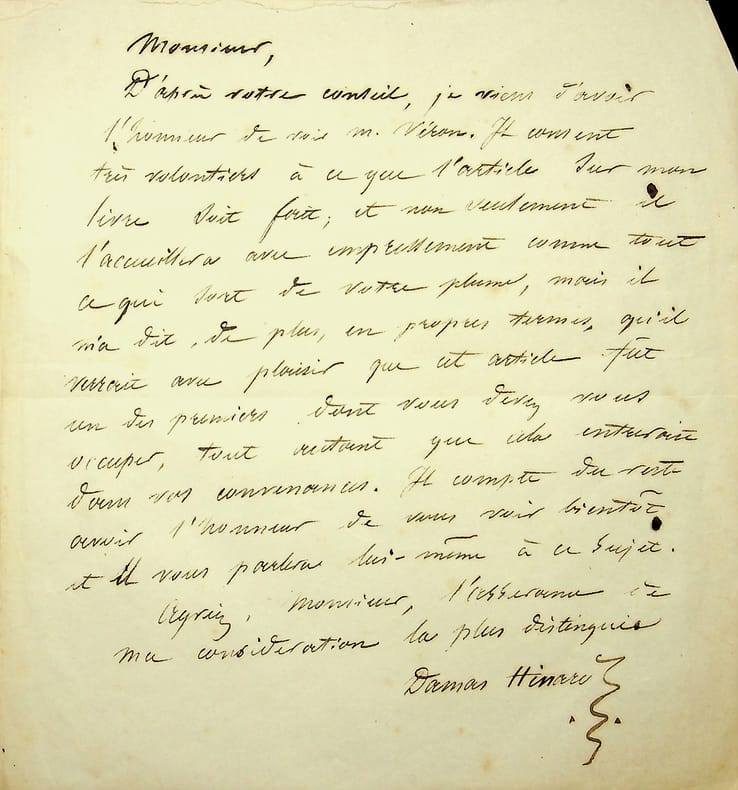 Monsieur,
D'après votre conseil, je viens d'avoir
l'honneur de voir m. Véron. Il consent
très volontiers à ce que l'article sur mon
livre soit fait; et non seulement il
l'accueillera avec empressement comme tout
ce qui sort de votre plume, mais il
m'a dit, de plus, en propres termes, qu'il
verrait avec plaisir que cet article fût
un des premiers dont vous devez vous
occuper, tout autant que cela entrerait
dans vos convenances. Il compte du reste
avoir l'honneur de vous voir bientôt
et il vous parlera lui-même à ce sujet.
Agréez, Monsieur, l'assurance de
ma considération la plus distinguée
Damas Hinard